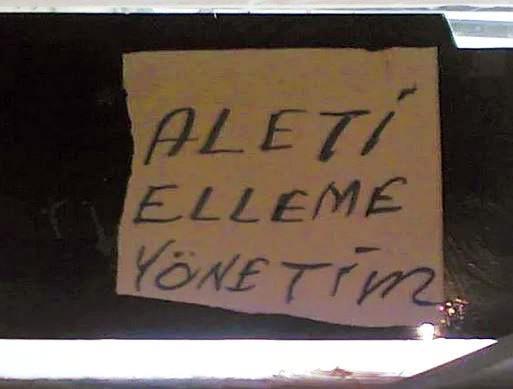 ALETİ
ELLEME
YÖNETİM